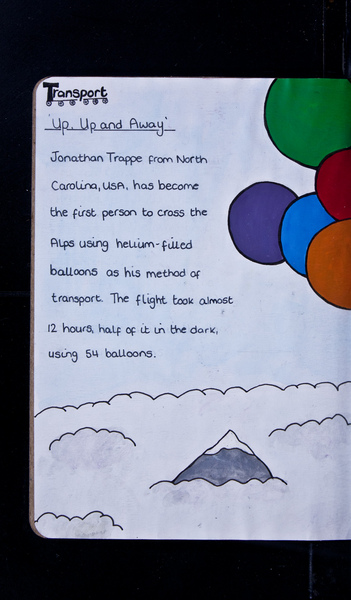 Transport
'Up, Up and Away'
Jonathan Trappe from North
Carolina, USA, has become
the first person to cross the
Alps using helium-filled
balloons as his method of
transport. The flight took almost
12 hours, half of it in the dark,
using 54 balloons.